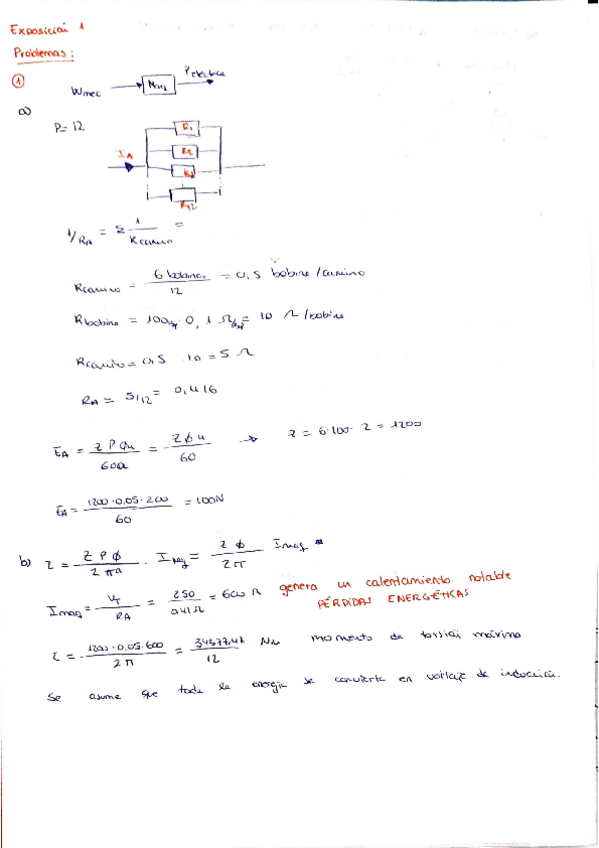 Exposición 1
Problemas:
①
Wmec
Maq
Pelectrica
a)
P= 12
IA
R1
R2
R3
R12
1/RA = Σ 1/Rcamino =
Rcamino = 6 bobinas/12 = 0,5 bobina/camino
Rbobina = 100esp · 0,1 Ω/esp = 10 Ω/bobina
Rcamino = 0,5 · 10 = 5 Ω
RA = 5/12 = 0,416
EA = Z P ϕ n/60a = Z ϕ n/60 → Z = 6·100·2 = 1200
EA = 1200·0,05·200/60 = 100N
b) τ = Z P ϕ/2πa · Imaq = Z ϕ/2π Imaq
Imaq = VT/RA = 250/0,41Ω = 600 A genera un calentamiento notable
PÉRDIDAS ENERGÉTICAS
τ = 1200·0,05·600/2π = 34377,47/12 Nm momento de torsión máximo
Se asume que toda la energía se convierte en voltaje de inducción.